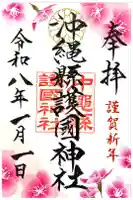 奉拝
謹賀新年
沖縄縣護國神社
沖縄県
護国神社
令和八年一月一日